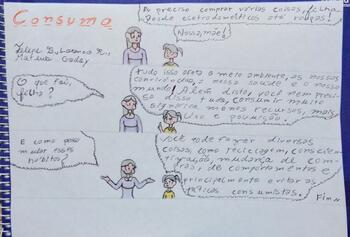 Consumo
Felipe B, Lorenna R,
Mateus Godoy
Já preciso comprar várias coisas, filha
Desde eletrodomésticos até roupas!
Nossa, mãe!
O que foi,
filha?
Tudo isso afeta o meio ambiente, as nossas
convivências, a nossa saúde e o nosso
mundo! Além disto, você nem precisa
disso tudo, consumir muito
significa menos recursos, mais
lixo e poluição.
E como posso
mudar esses
hábitos?
Você pode fazer diversas
coisas, como reciclagem, conscien-
tização, mudança de com-
pras, de comportamentos e
principalmente evitar as
práticas consumistas.
Fim